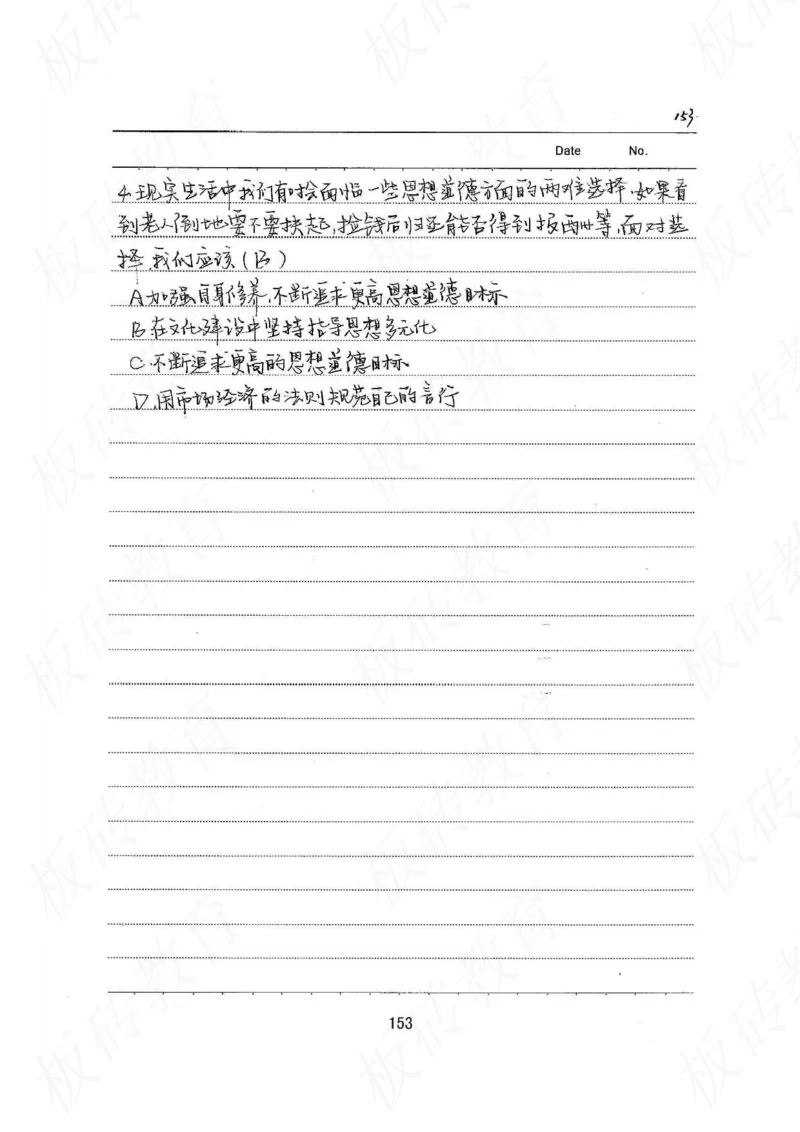 153
Date No.
4.现实生活中我们有时会面临一些思想道德方面的两难选择.如果看
到老人倒地要不要扶起,捡钱后归还能否得到报酬等,面对选
择,我们应该(B)
A加强自身修养,不断追求更高思想道德目标
B.在文化建设中坚持指导思想多元化
C.不断追求更高的思想道德目标
D.用市场经济的法则规范自己的言行
153
板砖教育